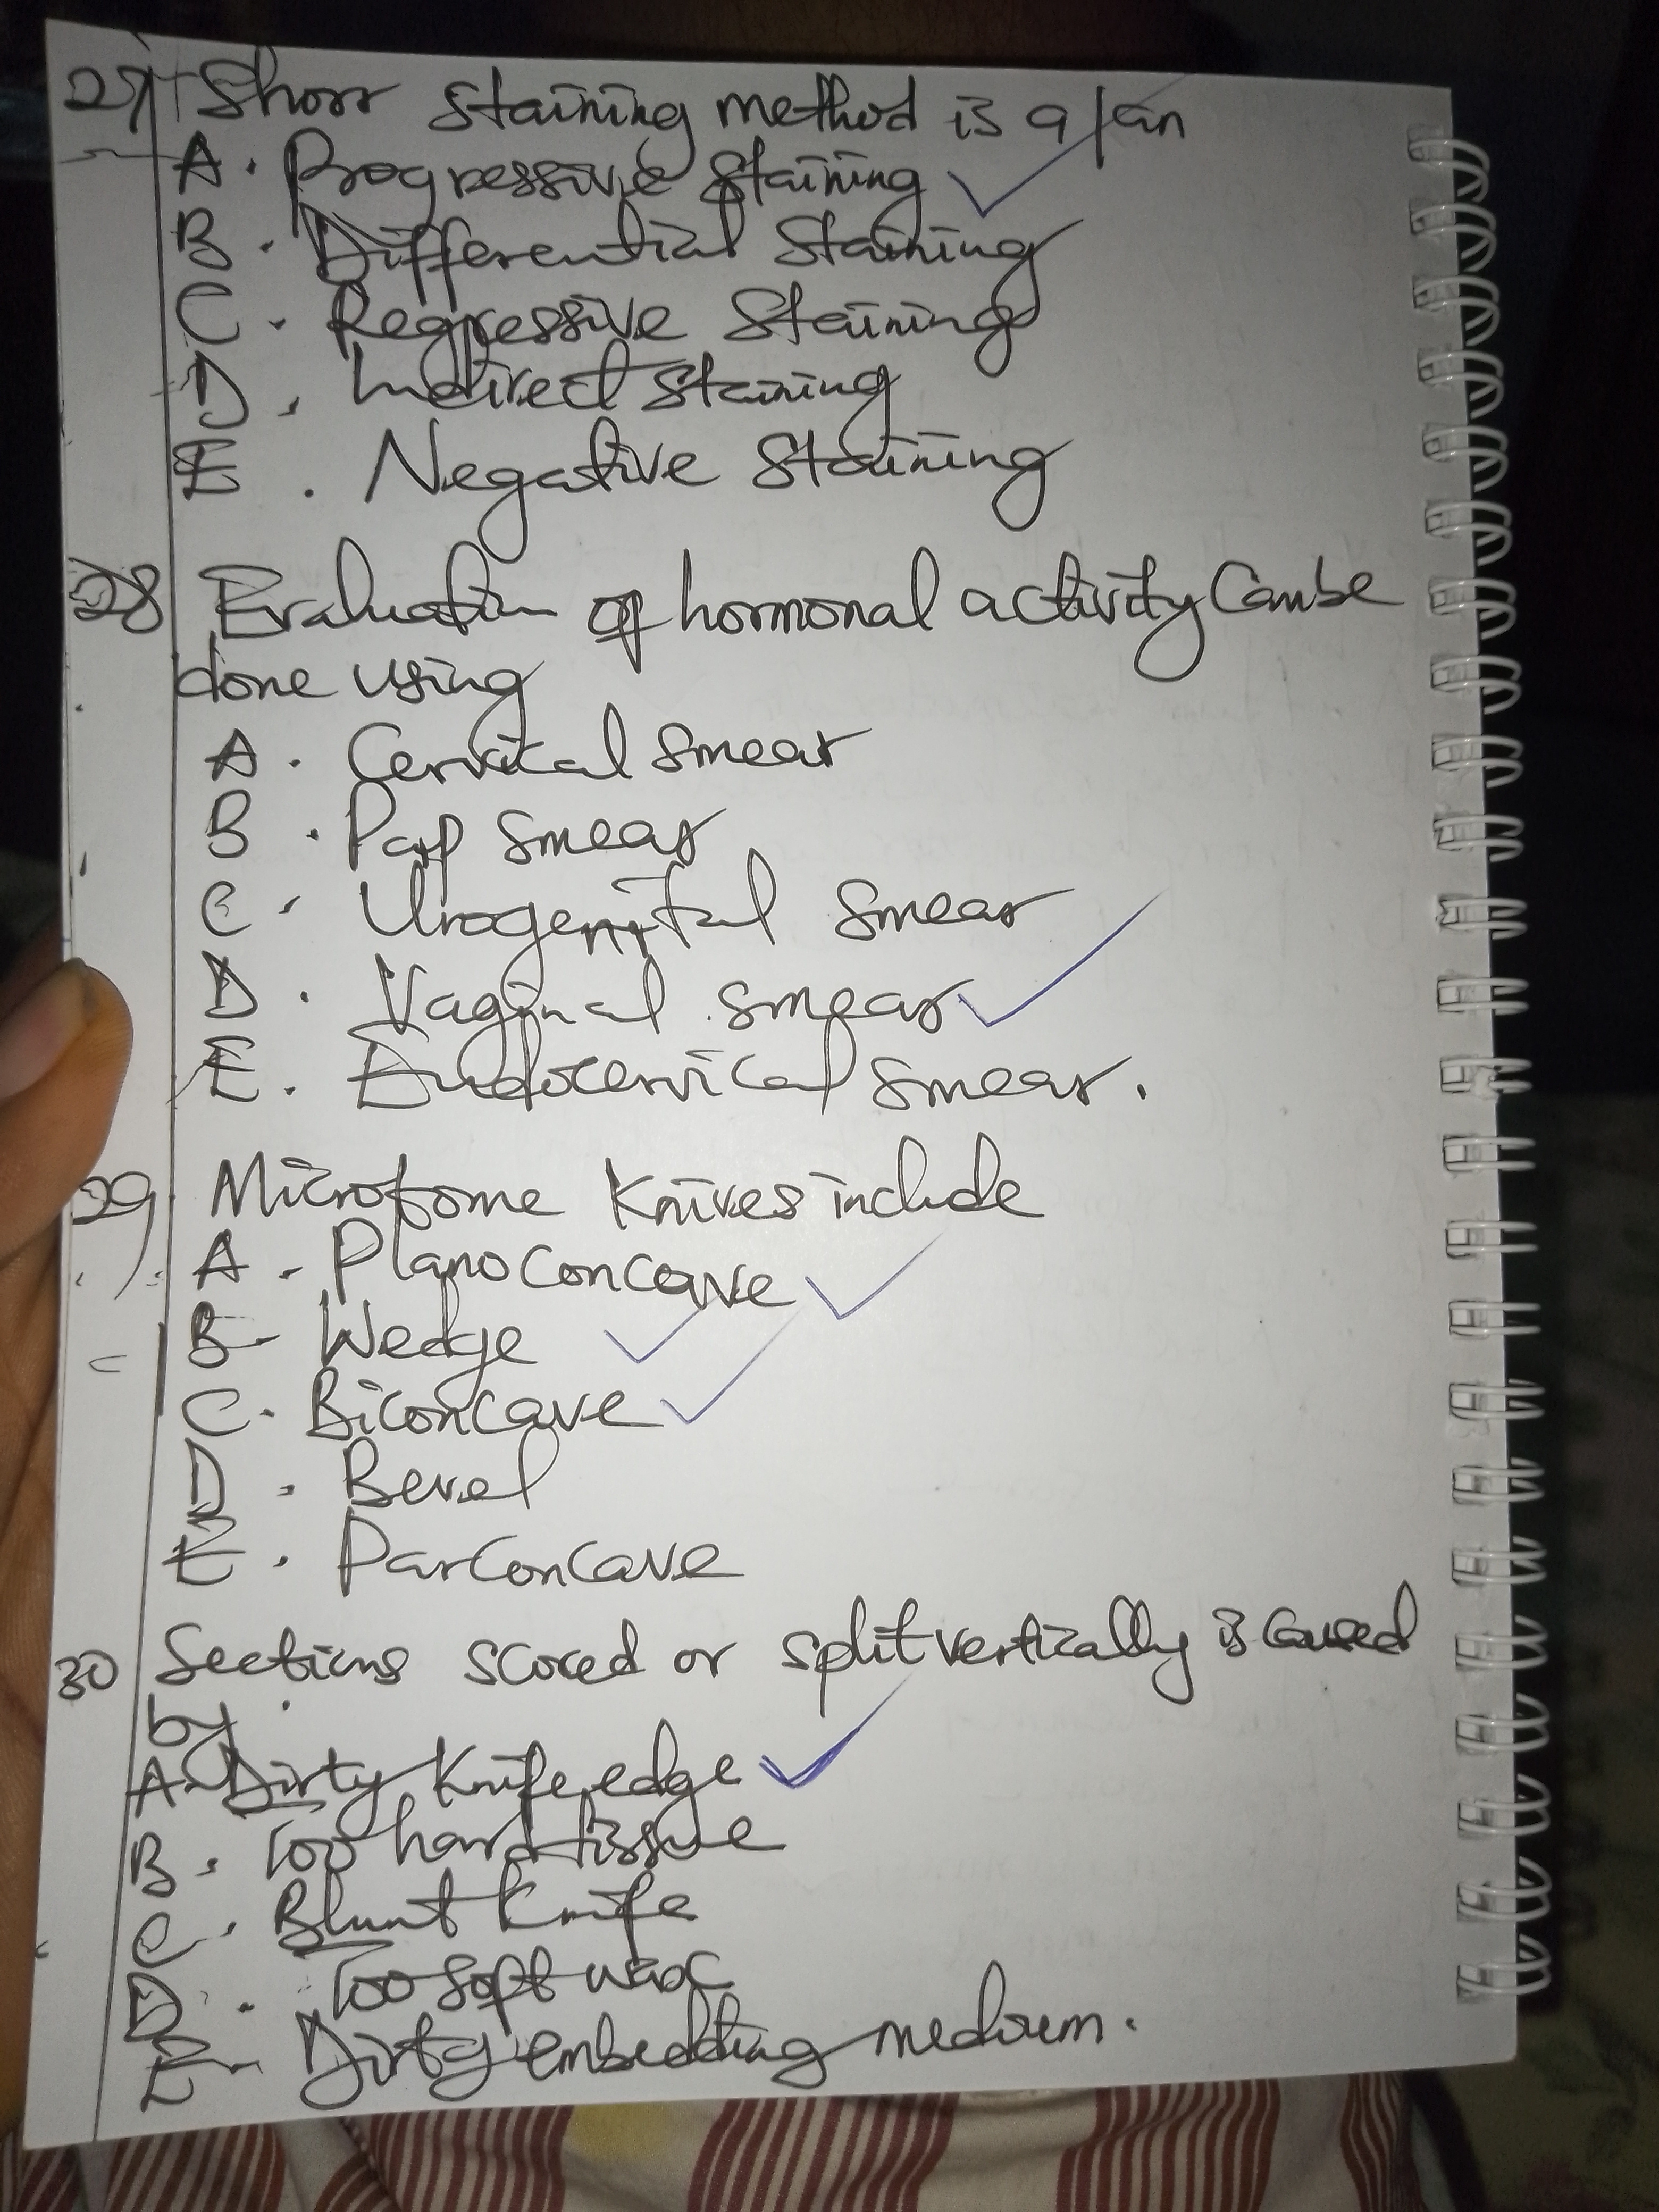 27 Shorr Staining method is a/an
A. Progressive Staining
B. Differential Staining
C. Regressive Staining
D. Indirect Staining
E. Negative Staining
28 Evaluation of hormonal activity Can be
done using
A. Cervical Smear
B. Pap Smear
C. Urogenital Smear
D. Vaginal smear
E. Endocervical Smear.
29. Microtome Knives include
A. Planoconcave
B- Wedge
C. Biconcave
D. Bevel
E. Parconcave
30 Sections scored or split vertically is caused
by.
A. Dirty Knife edge
B. Too hard tissue
C. Blunt Knife
D. Too soft wax
E- Dirty embedding medium.